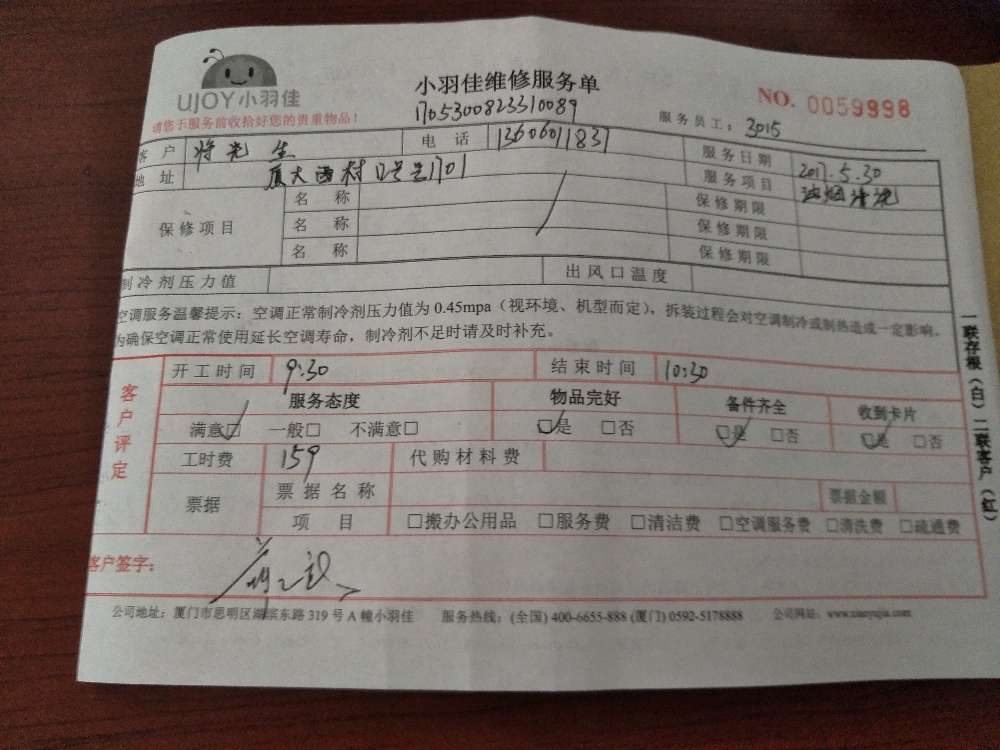 UJOY小羽佳
小羽佳维修服务单
NO. 0059998
1705300823310089
请您于服务前收拾好您的贵重物品！
服务员工：3015
客 户 将先生 电 话 13606011837 服务日期 2017.5.30
地 址 厦大西村 1701 服务项目 油烟清洗
保修项目 名 称 保修期限
名 称 保修期限
名 称 保修期限
制冷剂压力值 出风口温度
空调服务温馨提示：空调正常制冷剂压力值为 0.45mpa（视环境、机型而定），拆装过程会对空调制冷或制热造成一定影响。
为确保空调正常使用延长空调寿命，制冷剂不足时请及时补充。
客户评定
开工时间 9:30 结束时间 10:30
服务态度 物品完好 备件齐全 收到卡片
满意☑ 一般□ 不满意□ ☑是 □否 ☑是 □否 ☑是 □否
工时费 159 代购材料费
票据 票据名称 票据金额
项 目 □搬办公用品 □服务费 □清洁费 □空调服务费 □清洗费 □疏通费
客户签字：
公司地址：厦门市思明区湖滨东路 319 号 A 幢小羽佳 服务热线：(全国) 400-6655-888 (厦门) 0592-5178888 公司网址：www.xiaoyujia.com
一联存根（白）二联客户（红）